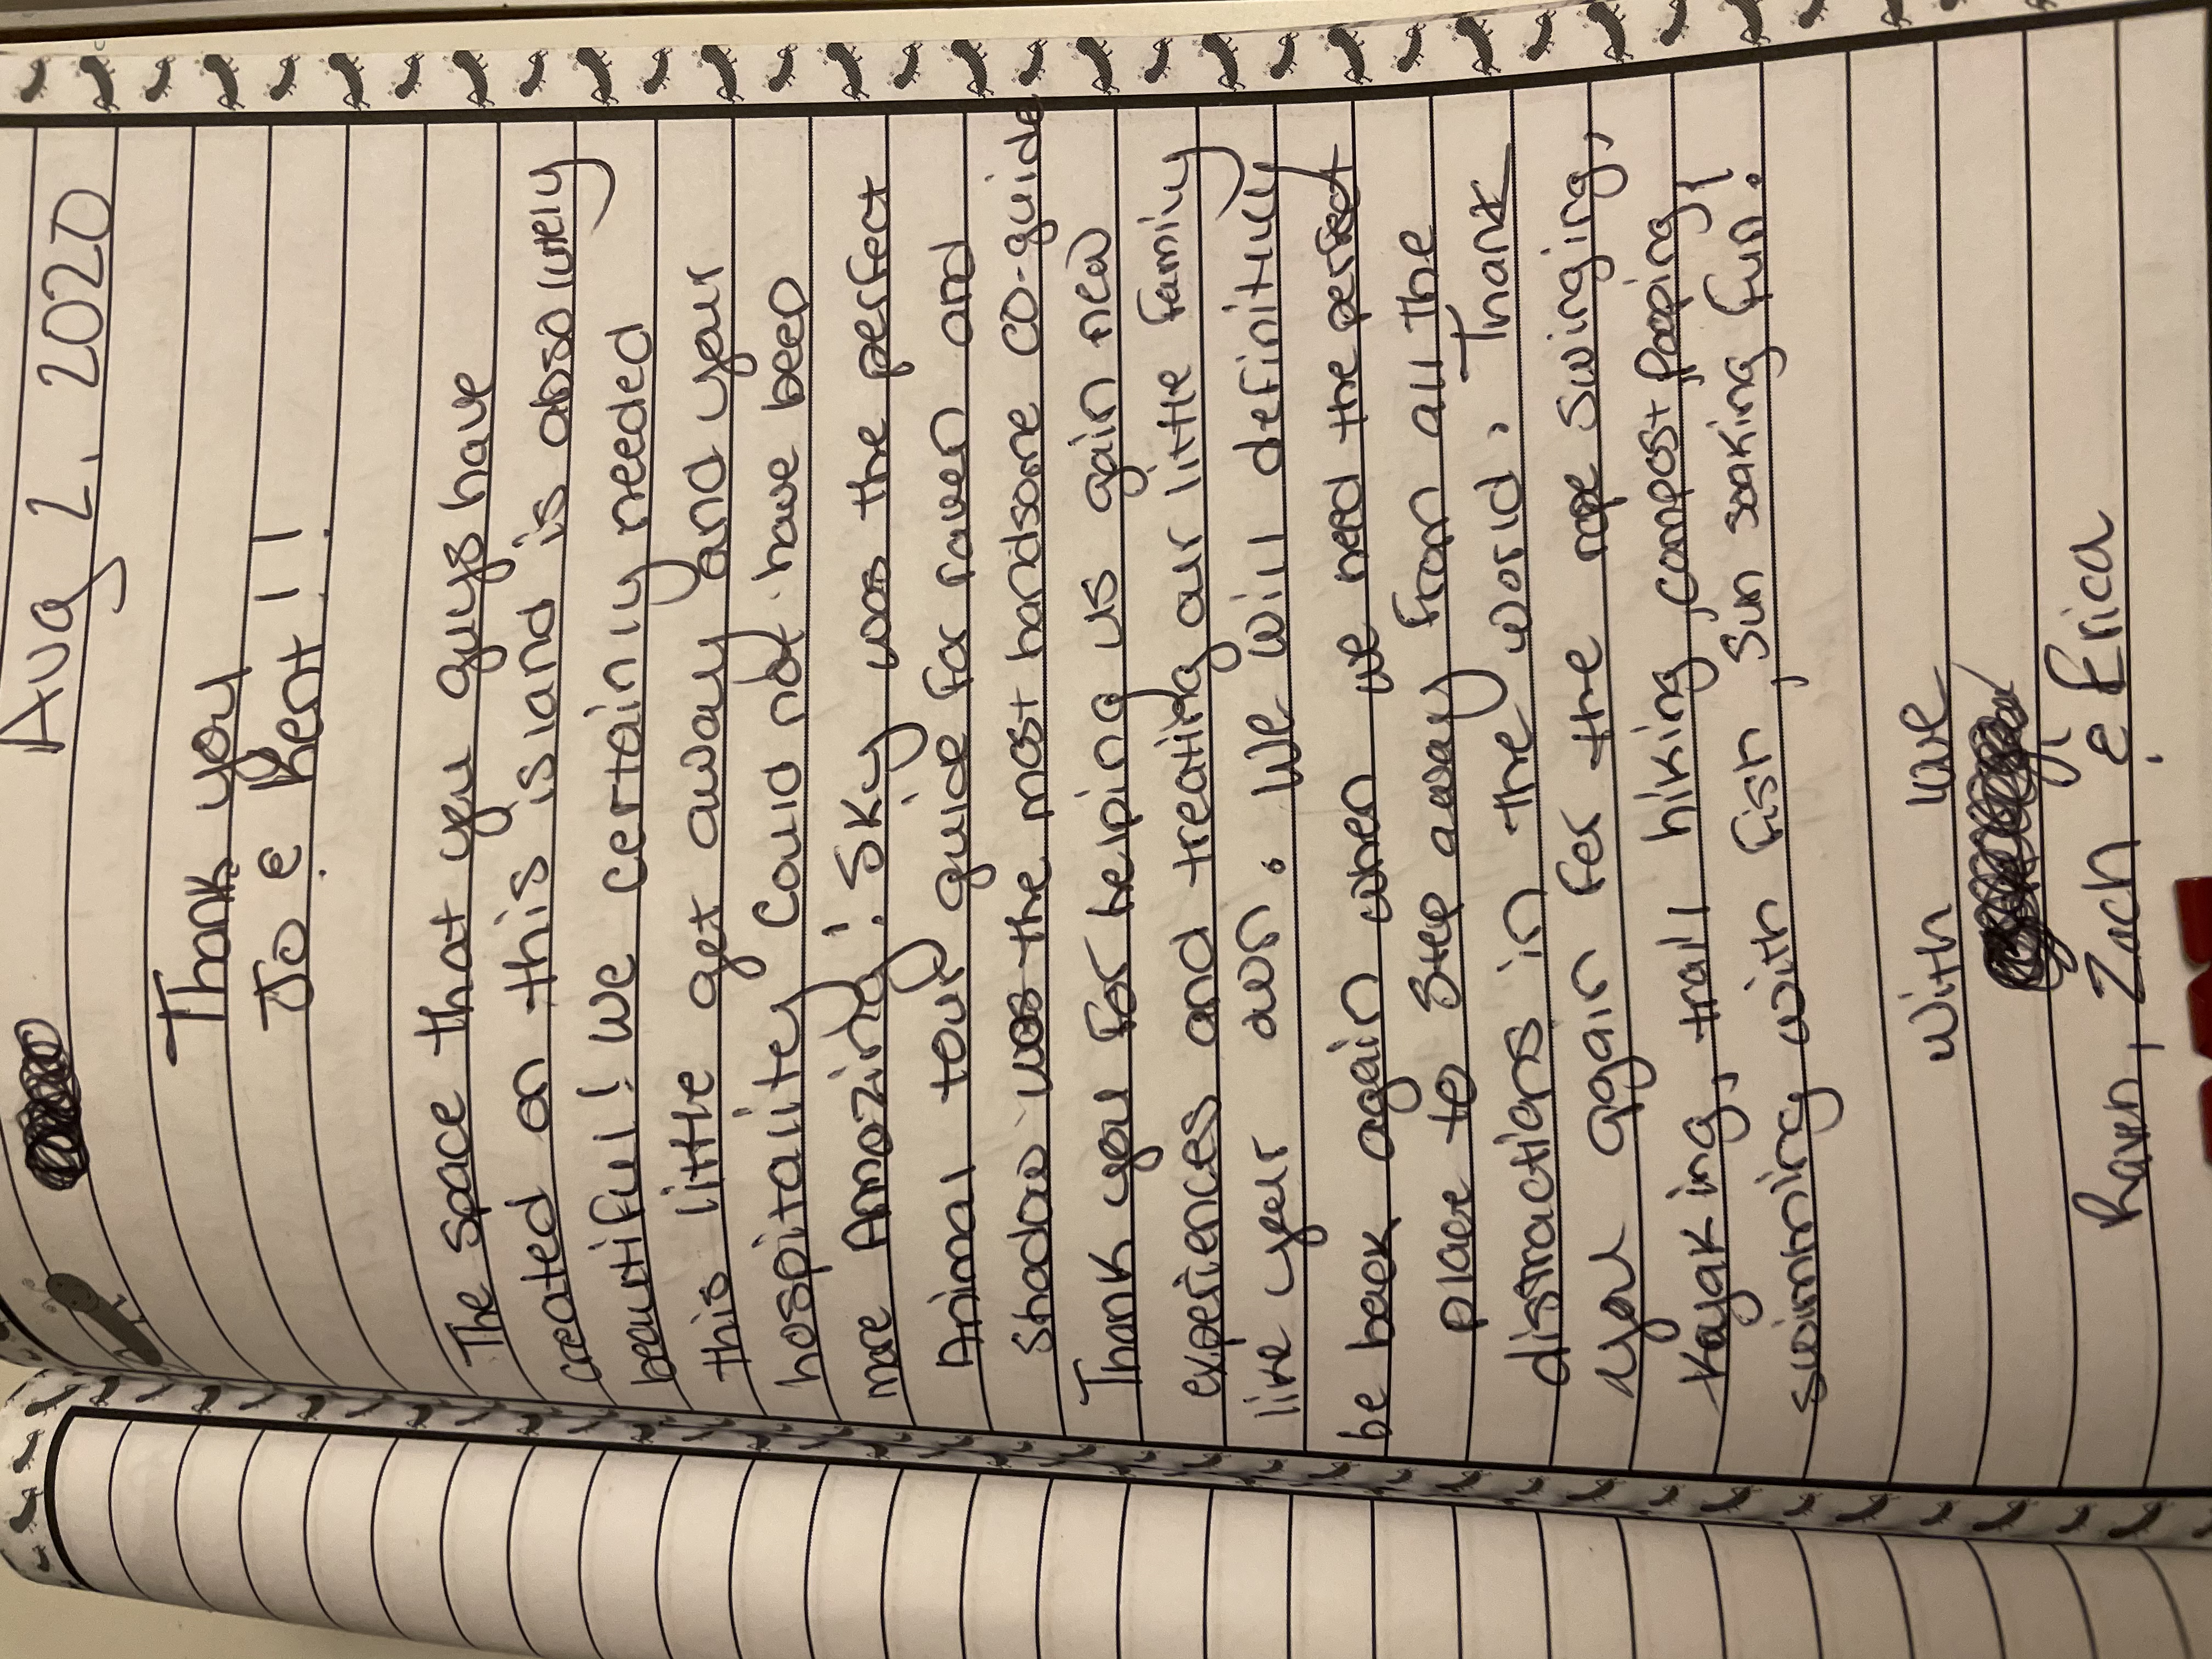 Aug 2. 2020
Thank you
Jo & Kent!!
The space that you guys have
created on this island is absolutely
beautiful! We certainly needed
this little get away and your
hospitality could not have been
more Amazing! Sky was the perfect
Animal tour guide for raven and
shadow was the most handsome co-guide
Thank you for helping us gain new
experiences and treating our little family
like your own. We will definitily
be back again when we need the perfect
place to step away from all the
distractions in the world. Thank
you again for the rope swinging,
kayaking, trail hiking, compost pooping,
swimming with fish, sun soaking fun!
with love
Raven, Zach & Erica